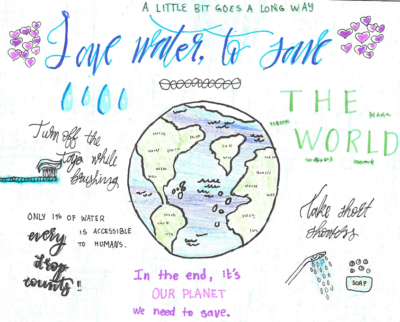 A LITTLE BIT GOES A LONG WAY
Love water, to save
THE
WORLD
Turn off the
tap while
brushing
ONLY 1% OF WATER
IS ACCESSIBLE
TO HUMANS.
every
drop
counts!!
Take short
showers
SOAP
In the end, it's
OUR PLANET
we need to save.